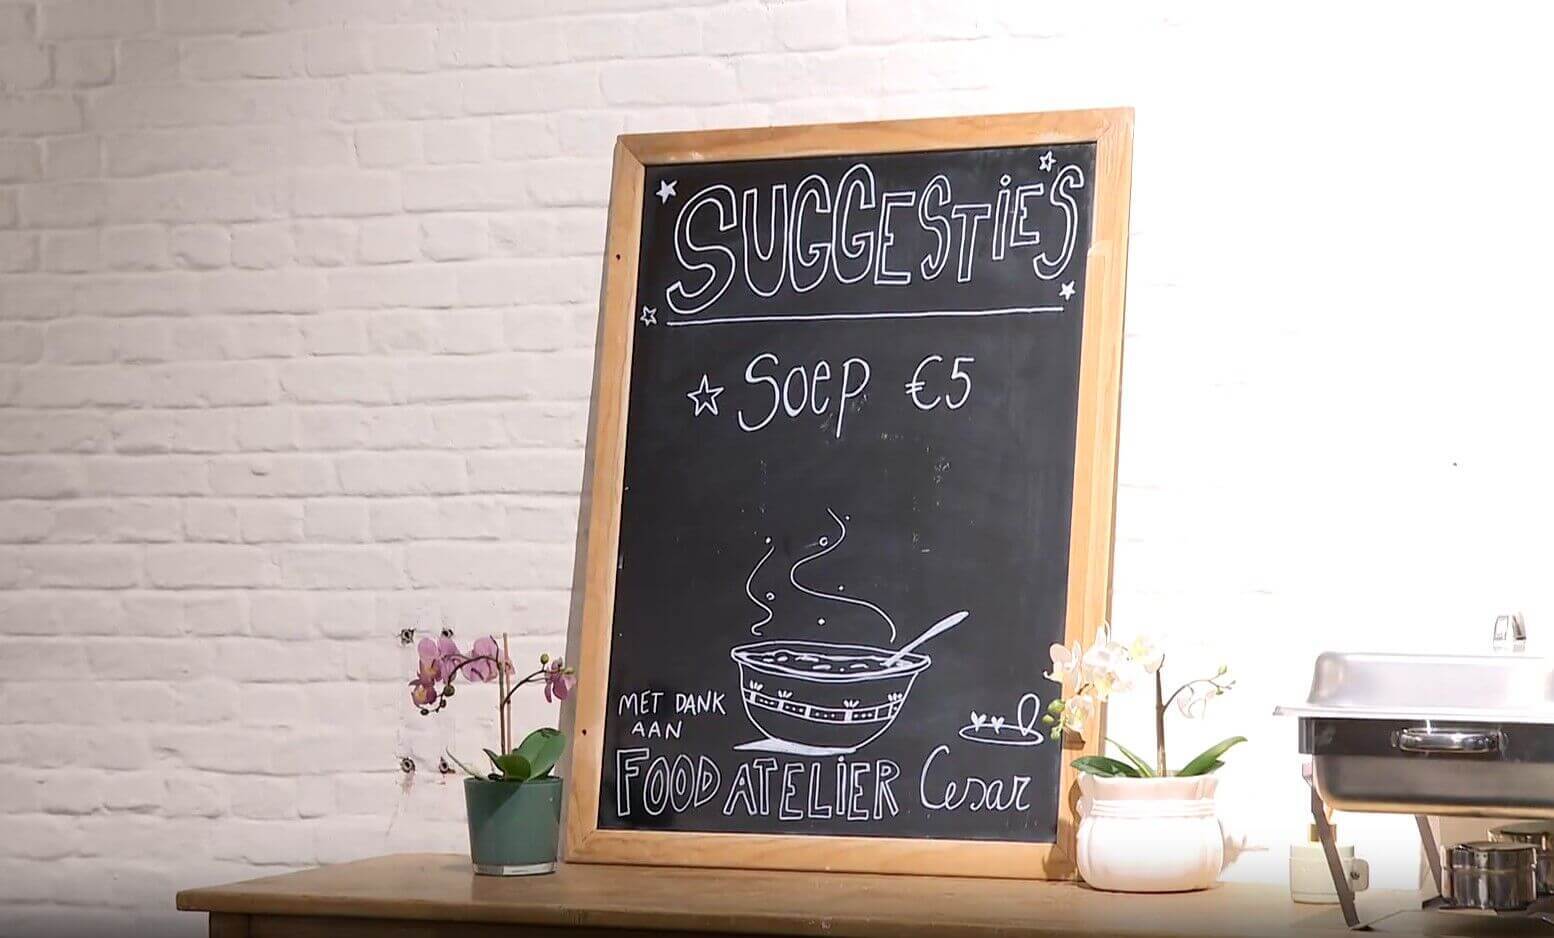 SUGGESTIE'S
Soep €5
MET DANK
AAN
FOOD ATELIER Cesar